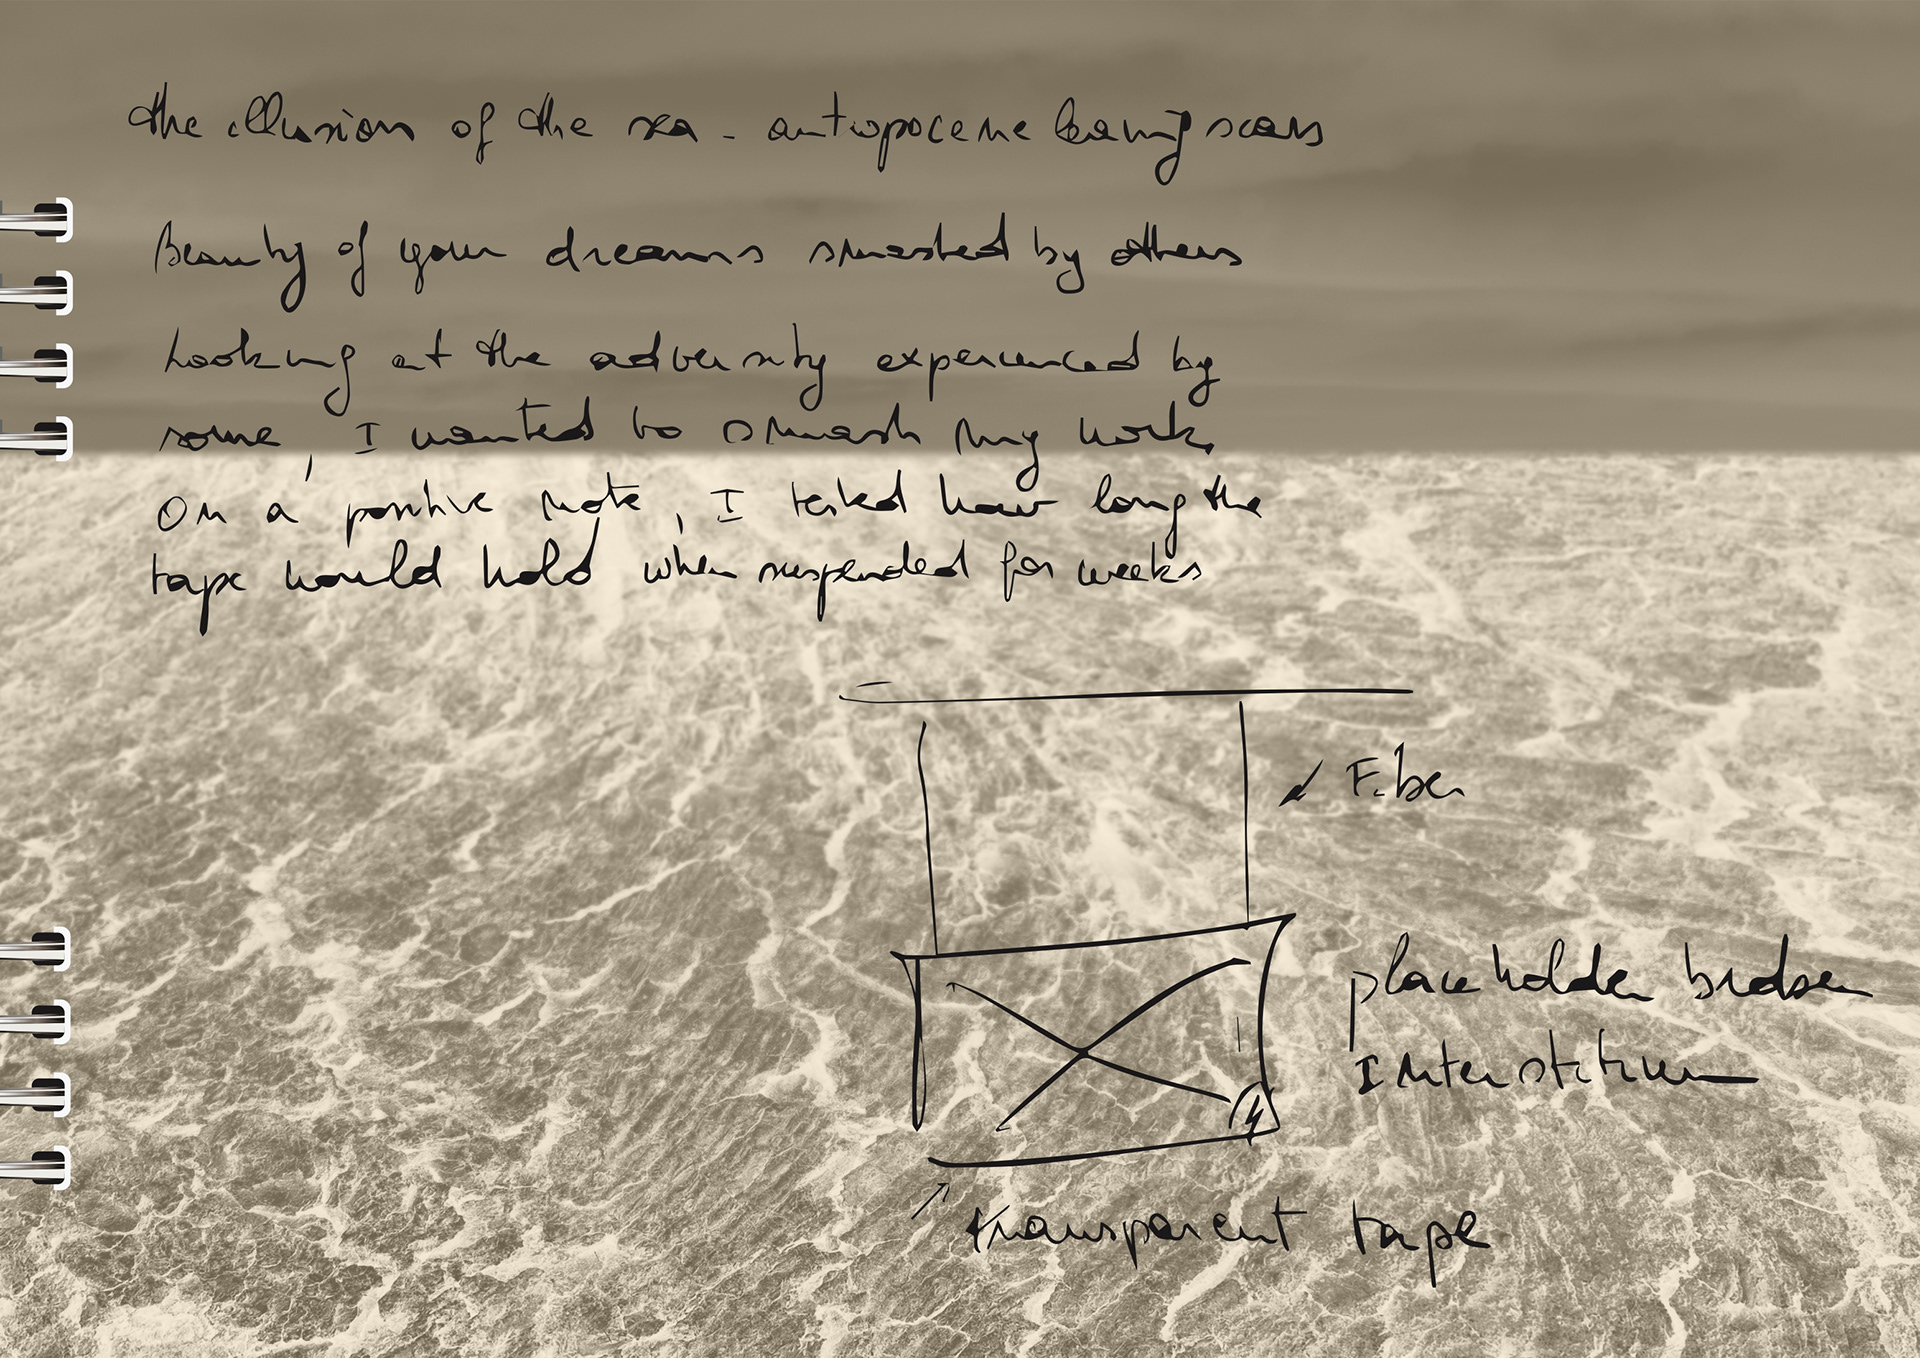 the illusion of the sea - antropocene leaving scars
Beauty of your dreams smashed by others
Looking at the adversity experienced by
some, I wanted to smash my work.
On a positive note, I tested how long the
tape would hold when suspended for weeks
Fiber
placeholder broken
Interstitium
transparent tape